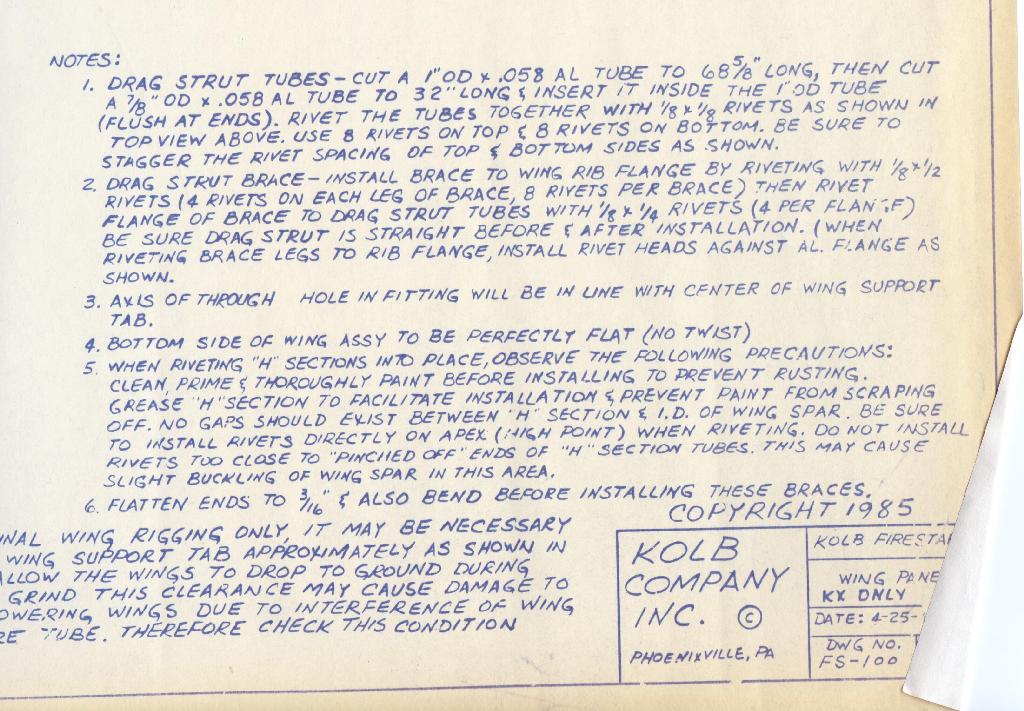 NOTES:
1. DRAG STRUT TUBES - CUT A 1" OD x .058 AL TUBE TO 68 5/8" LONG, THEN CUT
A 7/8" OD x .058 AL TUBE TO 32" LONG & INSERT IT INSIDE THE 1" OD TUBE
(FLUSH AT ENDS). RIVET THE TUBES TOGETHER WITH 1/8 x 1/8 RIVETS AS SHOWN IN
TOP VIEW ABOVE. USE 8 RIVETS ON TOP & 8 RIVETS ON BOTTOM. BE SURE TO
STAGGER THE RIVET SPACING OF TOP & BOTTOM SIDES AS SHOWN.
2. DRAG STRUT BRACE - INSTALL BRACE TO WING RIB FLANGE BY RIVETING WITH 1/8 x 1/2
RIVETS (4 RIVETS ON EACH LEG OF BRACE, 8 RIVETS PER BRACE) THEN RIVET
FLANGE OF BRACE TO DRAG STRUT TUBES WITH 1/8 x 1/4 RIVETS (4 PER FLANGE)
BE SURE DRAG STRUT IS STRAIGHT BEFORE & AFTER INSTALLATION. (WHEN
RIVETING BRACE LEGS TO RIB FLANGE, INSTALL RIVET HEADS AGAINST AL. FLANGE AS
SHOWN.
3. AXIS OF THROUGH HOLE IN FITTING WILL BE IN LINE WITH CENTER OF WING SUPPORT
TAB.
4. BOTTOM SIDE OF WING ASSY TO BE PERFECTLY FLAT (NO TWIST)
5. WHEN RIVETING "H" SECTIONS INTO PLACE, OBSERVE THE FOLLOWING PRECAUTIONS:
CLEAN, PRIME & THOROUGHLY PAINT BEFORE INSTALLING TO PREVENT RUSTING.
GREASE "H" SECTION TO FACILITATE INSTALLATION & PREVENT PAINT FROM SCRAPING
OFF. NO GAPS SHOULD EXIST BETWEEN "H" SECTION & I.D. OF WING SPAR. BE SURE
TO INSTALL RIVETS DIRECTLY ON APEX (HIGH POINT) WHEN RIVETING. DO NOT INSTALL
RIVETS TOO CLOSE TO "PINCHED OFF" ENDS OF "H" SECTION TUBES. THIS MAY CAUSE
SLIGHT BUCKLING OF WING SPAR IN THIS AREA.
6. FLATTEN ENDS TO 3/16" & ALSO BEND BEFORE INSTALLING THESE BRACES.
NAL WING RIGGING ONLY, IT MAY BE NECESSARY
WING SUPPORT TAB APPROXIMATELY AS SHOWN IN
ALLOW THE WINGS TO DROP TO GROUND DURING
GRIND THIS CLEARANCE MAY CAUSE DAMAGE TO
OWERING WINGS DUE TO INTERFERENCE OF WING
RE TUBE. THEREFORE CHECK THIS CONDITION
COPYRIGHT 1985
KOLB
COMPANY
INC. ©
PHOENIXVILLE, PA
KOLB FIRESTA
WING PANE
KX ONLY
DATE: 4-25-
DWG NO.
FS-100